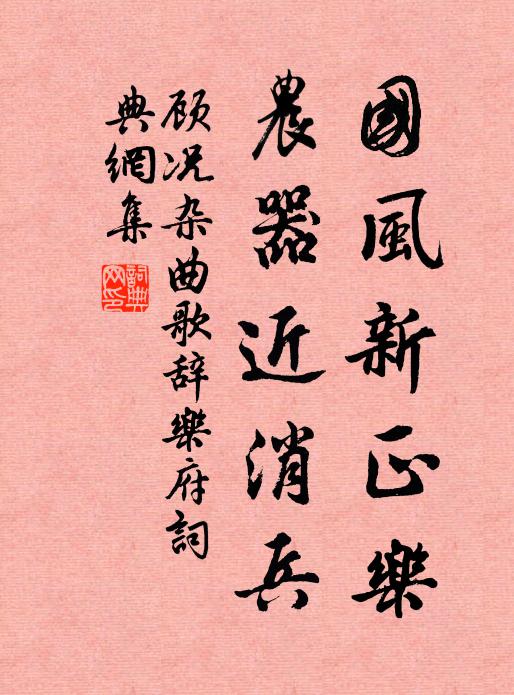 國風新正樂
農器近消兵
顾况杂曲歌辞樂府詞
典網集
詞典網印